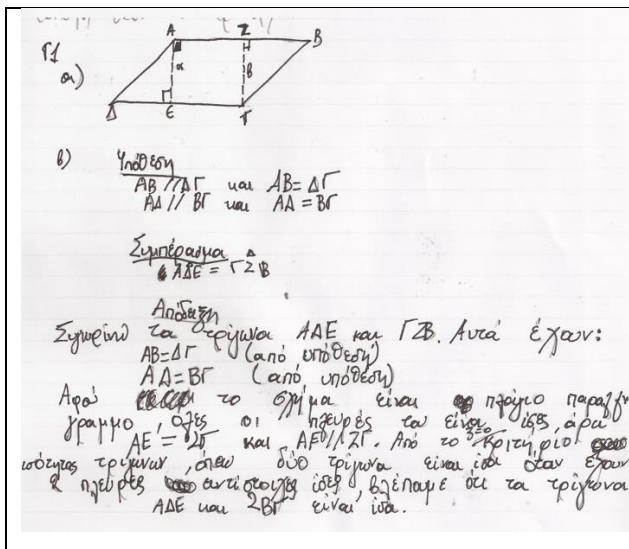 Γ1
α)
A Z B
α β
Δ E Γ
β) Υπόθεση
AB // ΔΓ και AB = ΔΓ
AΔ // BΓ και AΔ = BΓ
Συμπέρασμα
AΔE = ΓZB
Απόδειξη
Συγκρίνω τα τρίγωνα AΔE και ΓZB. Αυτά έχουν:
AB=ΔΓ (από υπόθεση)
AΔ=BΓ (από υπόθεση)
Αφού το σχήμα είναι πλάγιο παραλλη
γραμμο, όλες οι πλευρές του είναι ίσες, άρα
AE = ZΓ και AE//ZΓ. Από το κριτήριο
ισότητας τριγώνων, όπου δύο τρίγωνα είναι ίσα όταν έχουν
2 πλευρές αντίστοιχες ίσες, βλέπαμε ότι τα τρίγωνα
AΔE και ZBΓ είναι ίσα.